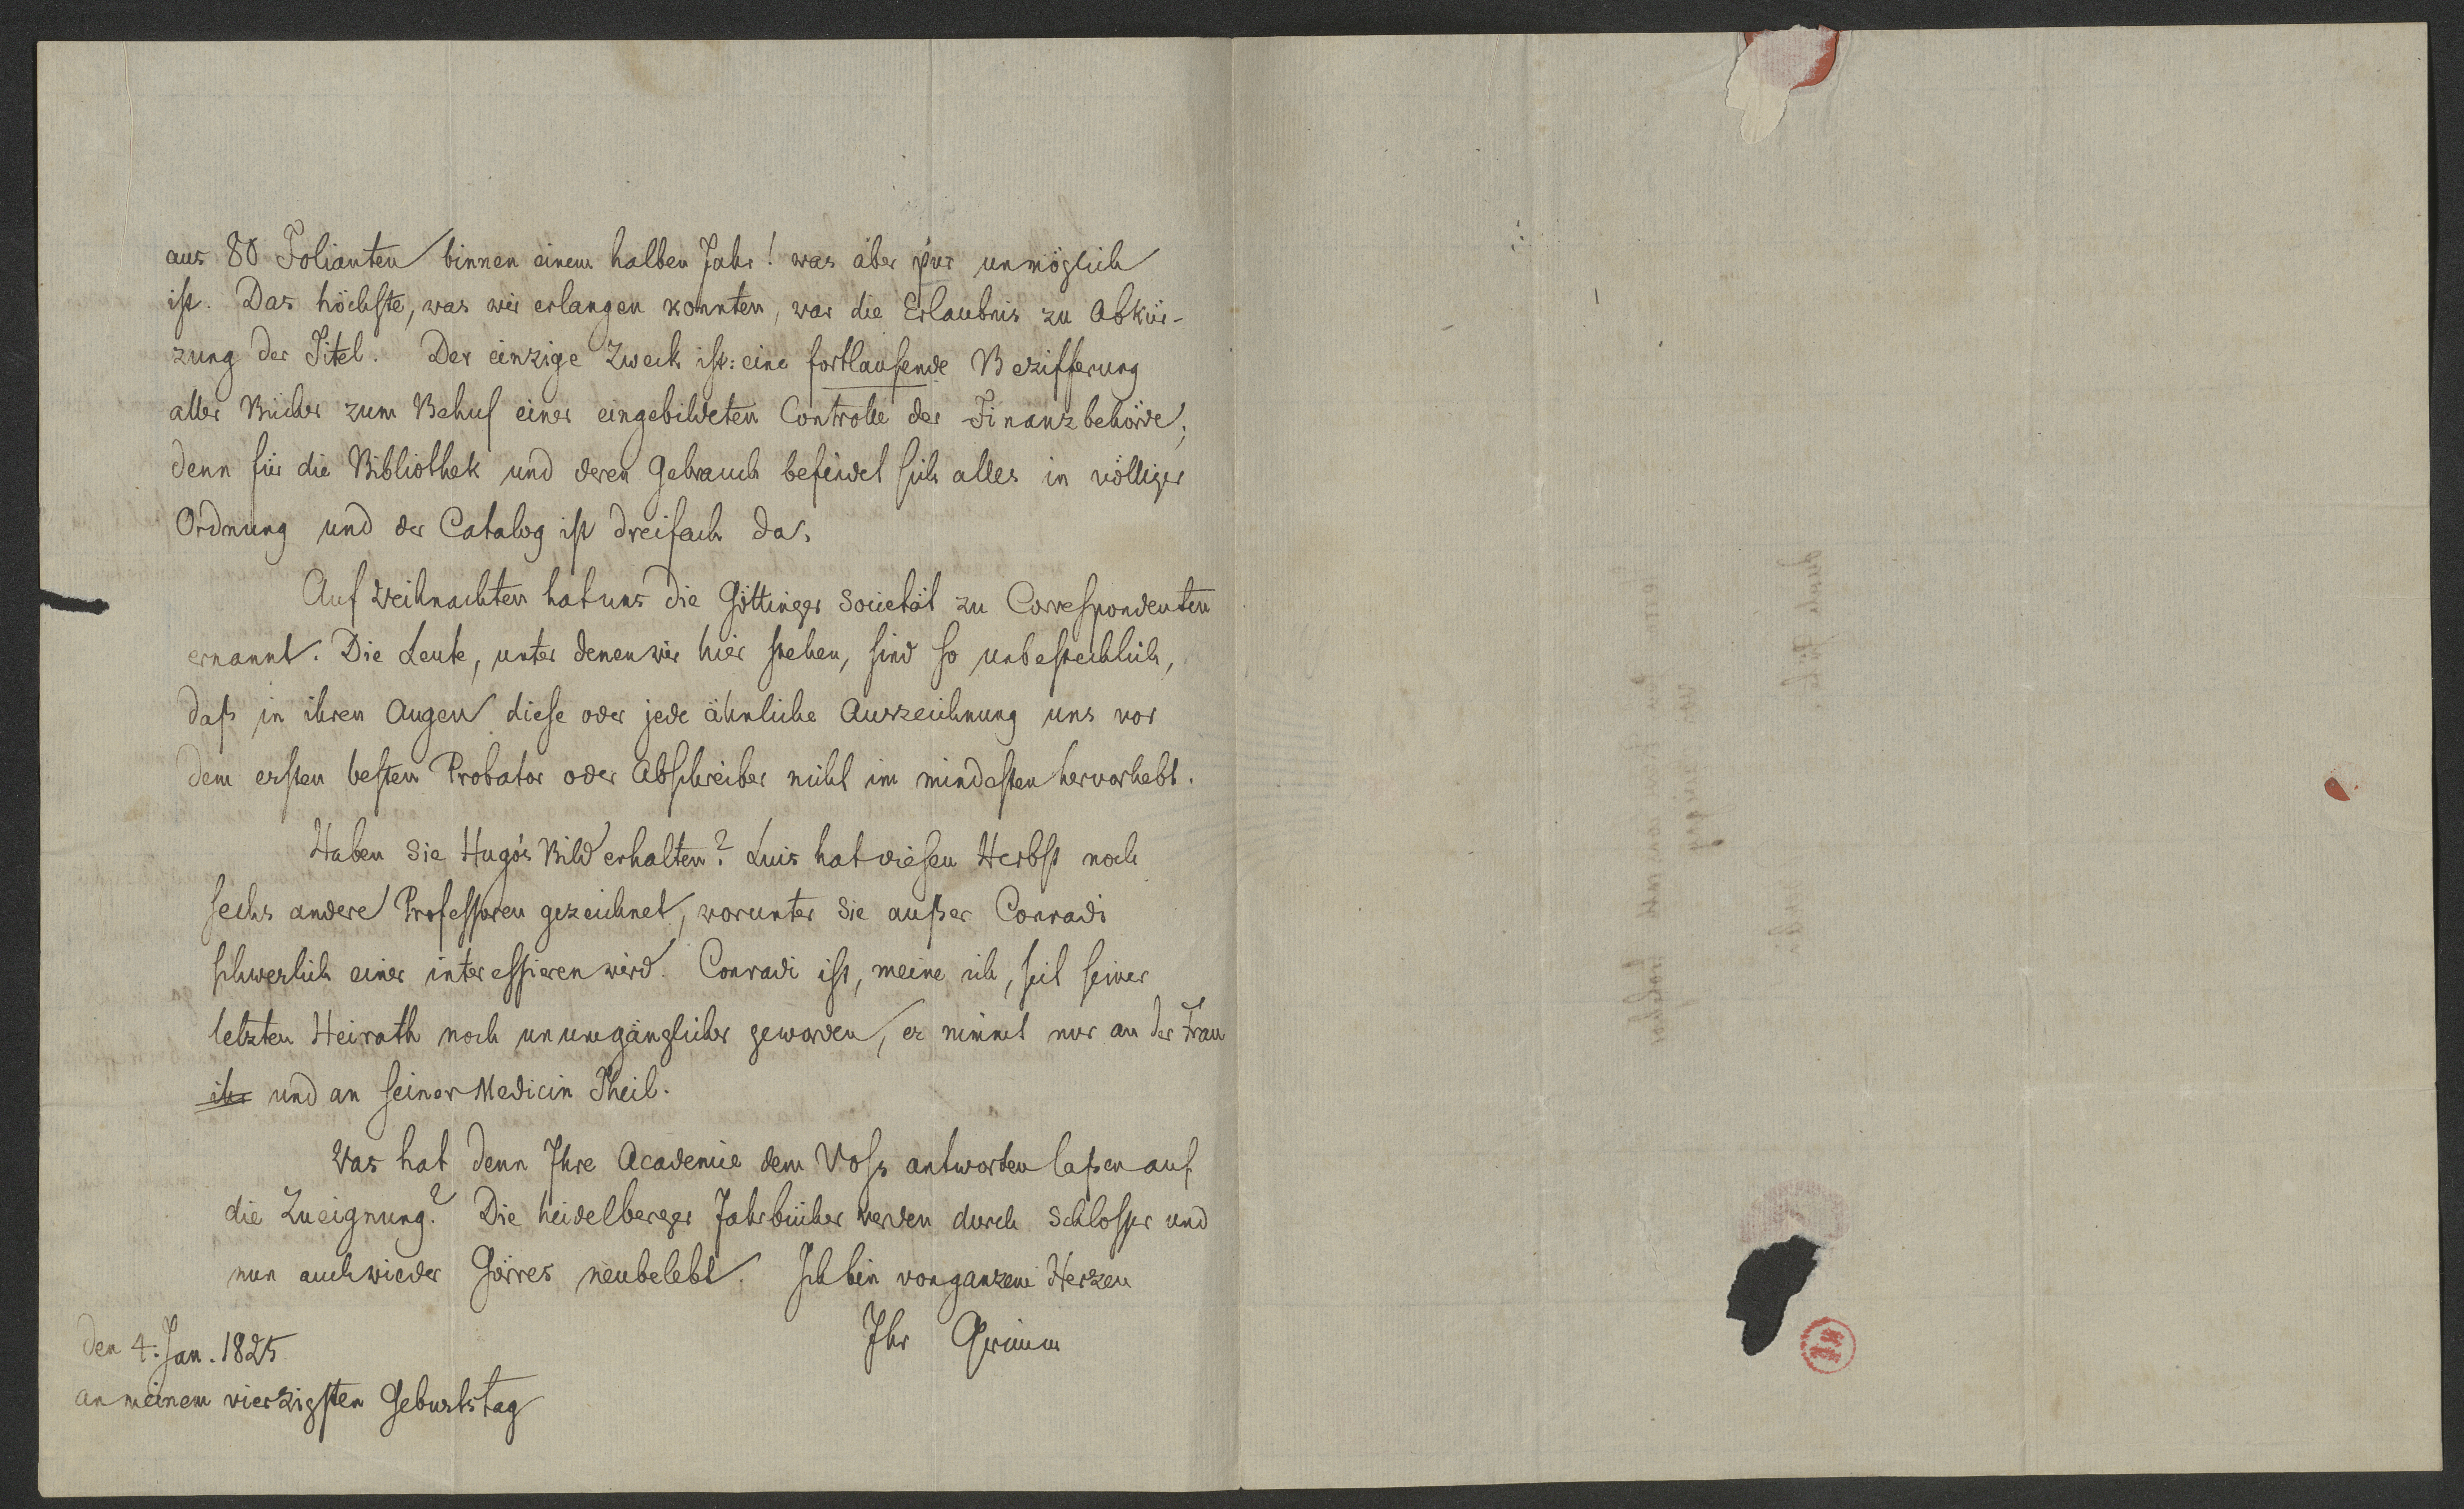 aus 80 Folianten binnen einem halben Jahr! was aber pur unmöglich
ist. Das höchste, was wir erlangen konnten, war die Erlaubnis zu Abkür-
zung der Titel. Der einzige Zweck ist: eine fortlaufende Bezifferung
aller Bücher zum Behuf einer eingebildeten Controlle der Finanzbehörde;
denn für die Bibliothek und deren Gebrauch befindet sich alles in völliger
Ordnung und der Catalog ist dreifach da.
Auf Weihnachten hat uns die Göttinger Societät zu Correspondenten
ernannt. Die Leute, unter denen wir hier stehen, sind so unbestechlich,
daß in ihren Augen diese oder jede ähnliche Auszeichnung uns vor
dem ersten besten Probator oder Abschreiber nicht im mindesten hervorhebt.
Haben Sie Hugo's Bild erhalten? Luis hat diesen Herbst noch
sechs andere Professoren gezeichnet, worunter Sie außer Conradi
schwerlich einer interessieren wird. Conradi ist, meine ich, seit seiner
letzten Heirath noch unumgänglicher geworden, er nimmt nur an der Frau
ihr und an seiner Medicin Theil.
Was hat denn Ihre Academie dem Voss antworten laßen auf
die Zueignung? Die heidelberger Jahrbücher werden durch Schlosser und
nun auch wieder Görres neubelebt. Ich bin von ganzem Herzen
Ihr Grimm
den 4. Jan. 1825
an meinem vierzigsten Geburtstag